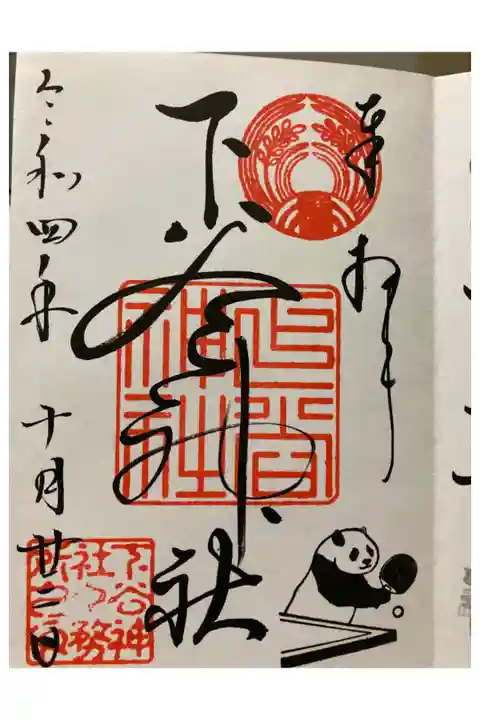 奉拝
下谷神社
下谷神社
令和四年 十月廿二日
下谷神
社々務
所之印